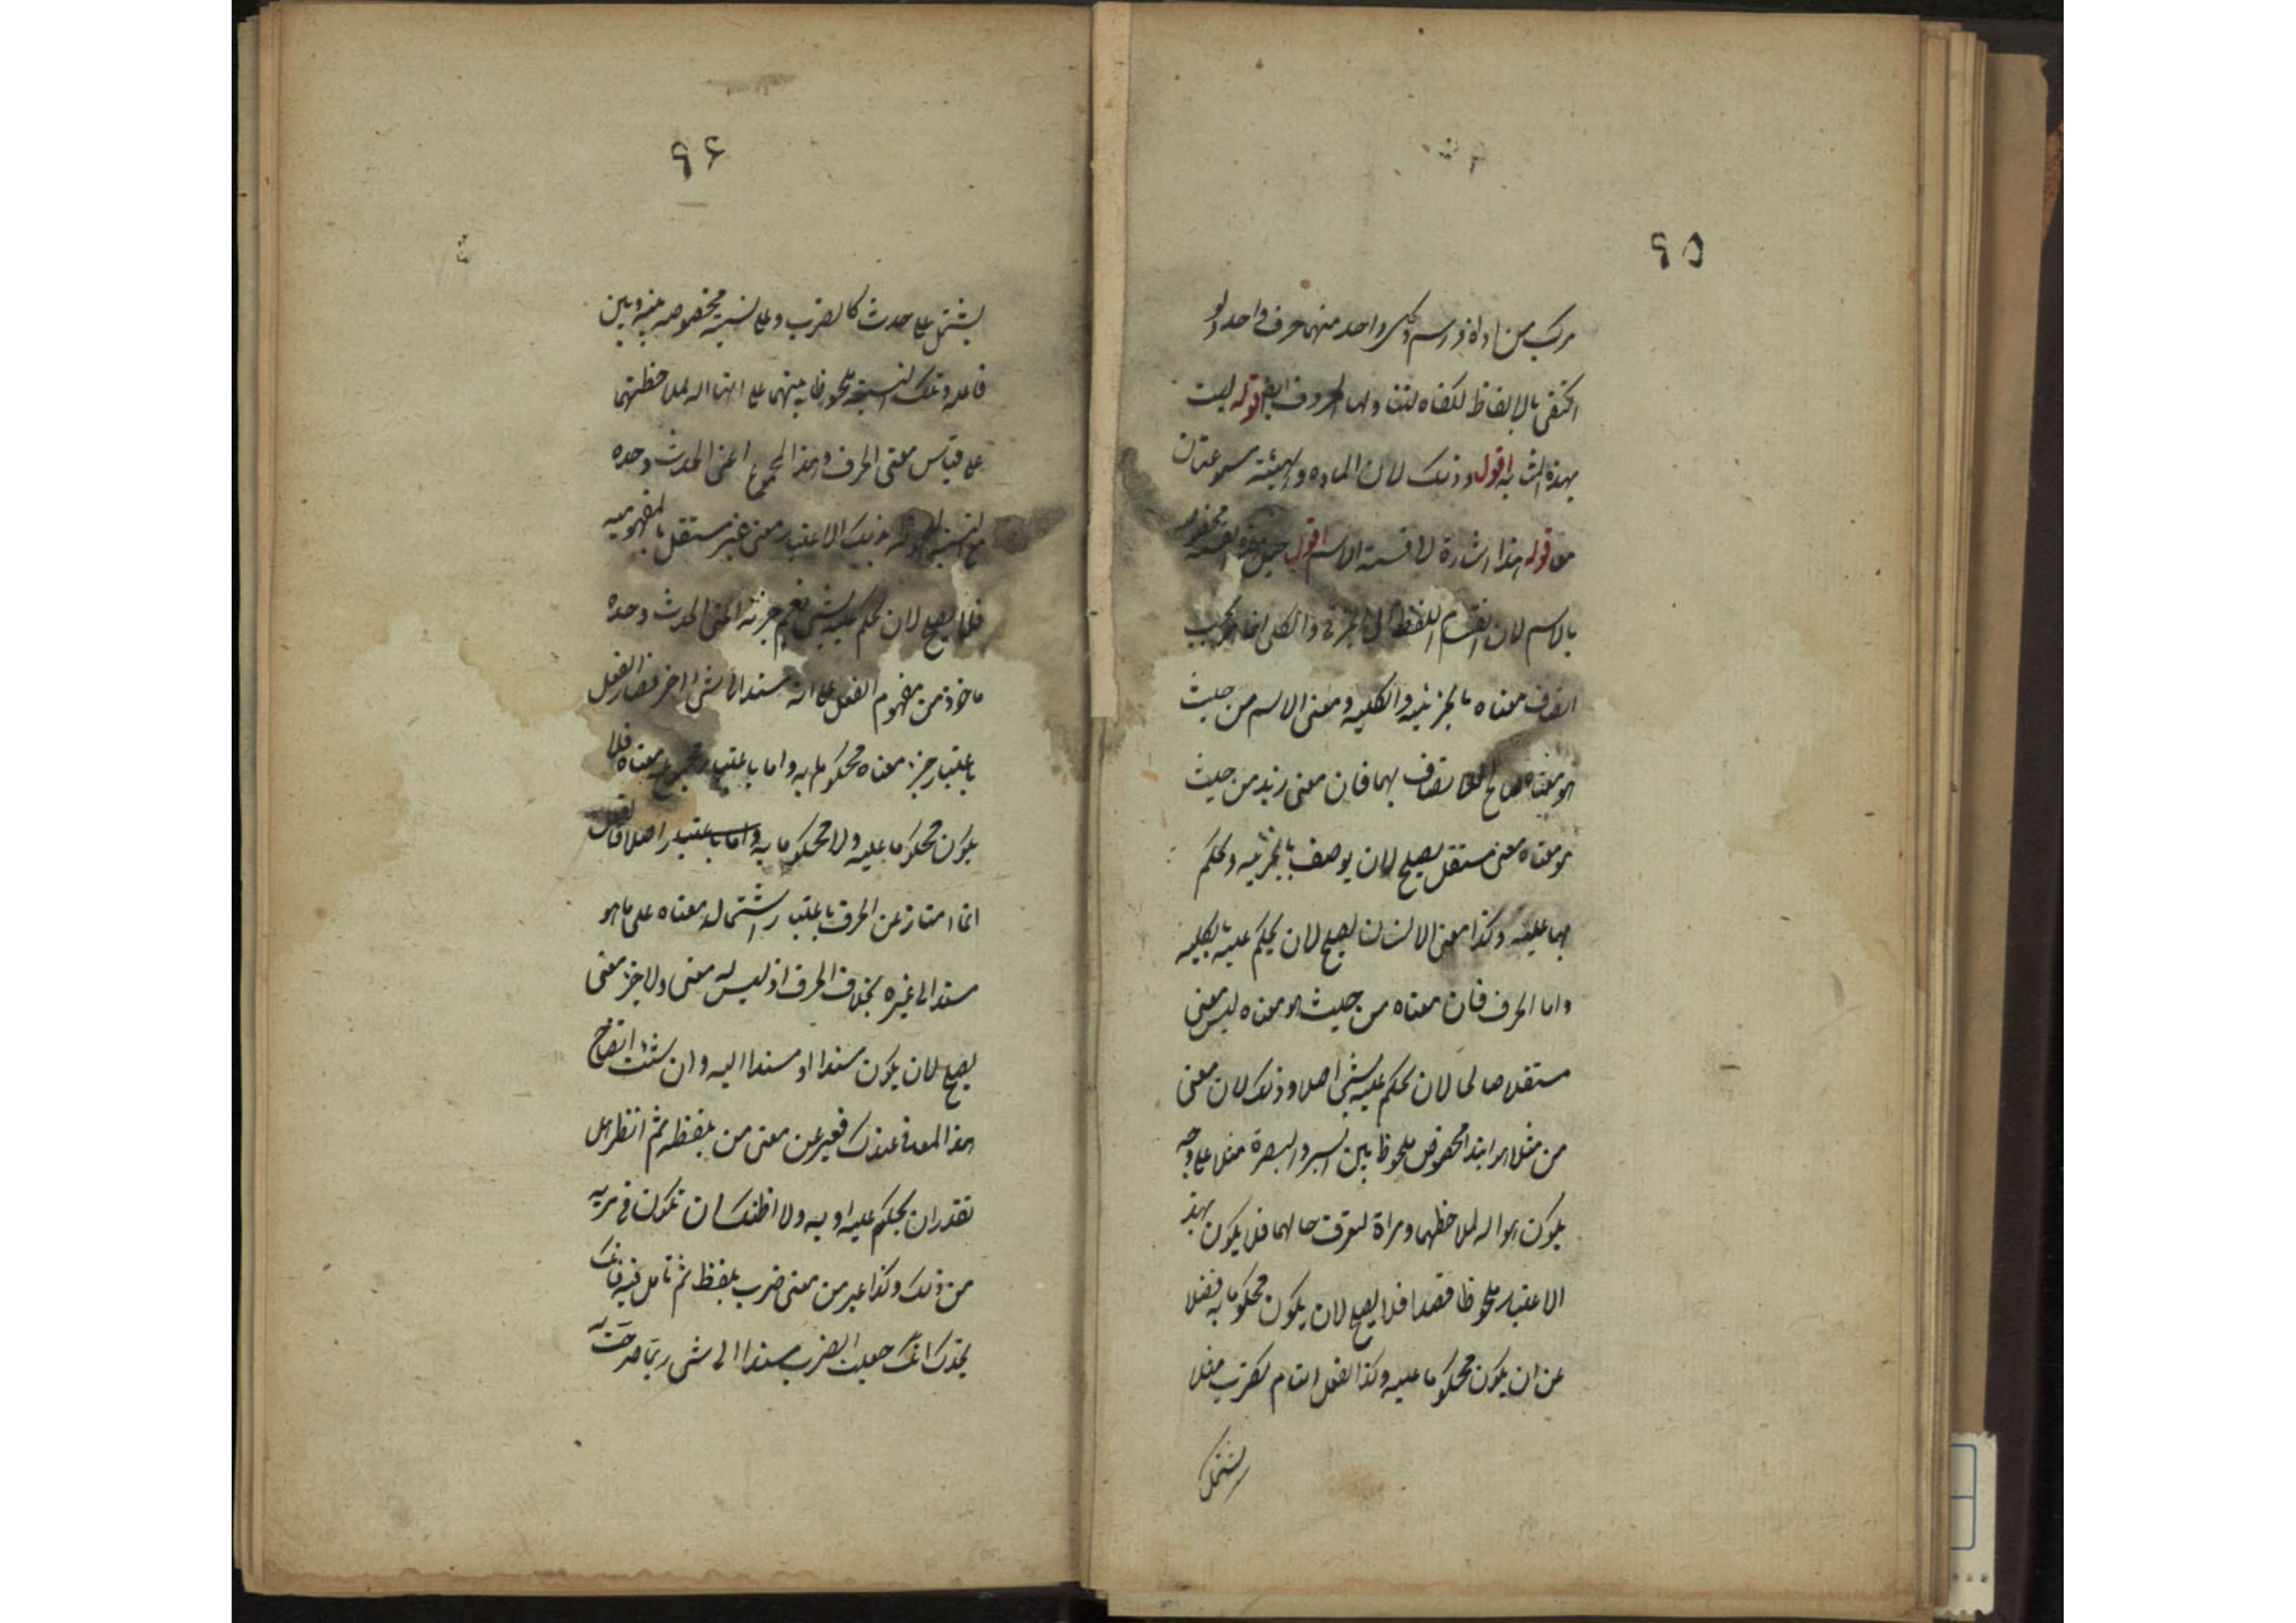 ٩٥
مركب من اداة ورسم وكل واحد منهما حرف واحد ولو
اكتفى بالالفاظ لكفاه لنقاولها الحروف ايضا قوله ليست
بهذه المثابة اقول وذلك لان المادة والهيئة مسموعتان
معا قوله هذا اشارة الى قسمة الاسم اقول جعل هذه القسمة مخصوصة
بالاسم لان انقسام اللفظ الى الجزئي والكلي انما هو بحسب
اتصاف معناه بالجزئية والكلية ومعنى الاسم من حيث
هو معناه صالح للاتصاف بهما فان معنى زيد من حيث
هو معناه معنى مستقل يصلح لان يوصف بالجزئية ويحكم
بها عليه وكذا معنى الانسان يصلح لان يحكم عليه بالكلية
واما الحرف فان معناه من حيث هو معناه ليس معنى
مستقلا صالحا لان يحكم عليه بشي اصلا وذلك لان معنى
من مثلا هو ابتداء مخصوص ملحوظ بين السير والبصرة مثلا على وجه
يكون هو الة لملاحظهما ومراة لتعرف حالهما فلا يكون بهذ
الاعتبار ملحوظا قصدا فلا يصلح لان يكون محكوما به فضلا
عن ان يكون محكوما عليه وكذا الفعل التام كضرب مثلا
يشتمل
٩٦
يشتمل على حدث كالضرب وعلى نسبة مخصوصة بينه وبين
فاعله وتلك النسبة ملحوظة بينهما على انها الة لملاحظتهما
على قياس معنى الحرف وهذا المجموع اعني الحدث وحده
مع النسبة بذلك الاعتبار معنى غير مستقل بالمفهومية
فلا يصلح لان يحكم عليه بشي نعم جزئه اعني الحدث وحده
ماخوذ من مفهوم الفعل على انه مسند الى شي اخر فصار الفعل
باعتبار جزء معناه محكوما به واما باعتبار مجموع معناه فلا
يكون محكوما عليه ولا محكوما به واما باعتبار اصلا فالفعل
انما امتاز عن الحرف باعتبار اشتمال معناه على ما هو
مسند الى غيره بخلاف الحرف اذ ليس له معنى ولا جزء معنى
يصلح لان يكون مسندا او مسندا اليه وان شئت اتضاح
هذا المعنى عندك فعبر عن معنى من بلفظه ثم انظر هل
تقدر ان يحكم عليه او به ولا اظنك ان تكون في مرية
من ذلك وكذا عبر من معنى ضرب بلفظ ثم تامل فيه فانك
تجدك انك جعلت الضرب مسندا الى شي ربما صرحت به